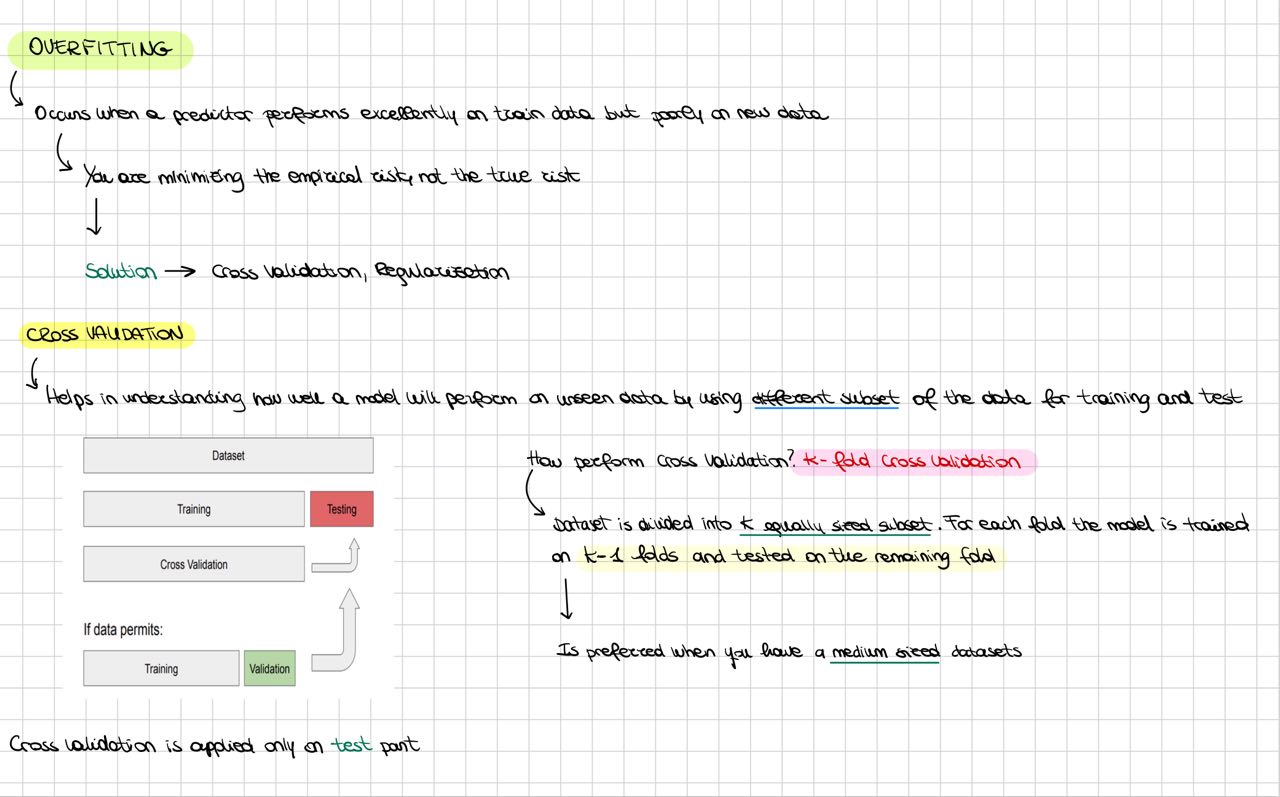 OVERFITTING
Occurs when a predictor performs excellently on train data but poorly on new data
You are minimizing the empirical risk, not the true risk
Solution → Cross Validation, Regularization
CROSS VALIDATION
Helps in understanding how well a model will perform on unseen data by using different subset of the data for training and test
Dataset
Training Testing
Cross Validation
If data permits:
Training Validation
How perform cross validation? K-fold cross validation
Dataset is divided into K equally sized subset. For each fold the model is trained
on K-1 folds and tested on the remaining fold
Is preferred when you have a medium sized datasets
Cross validation is applied only on test part